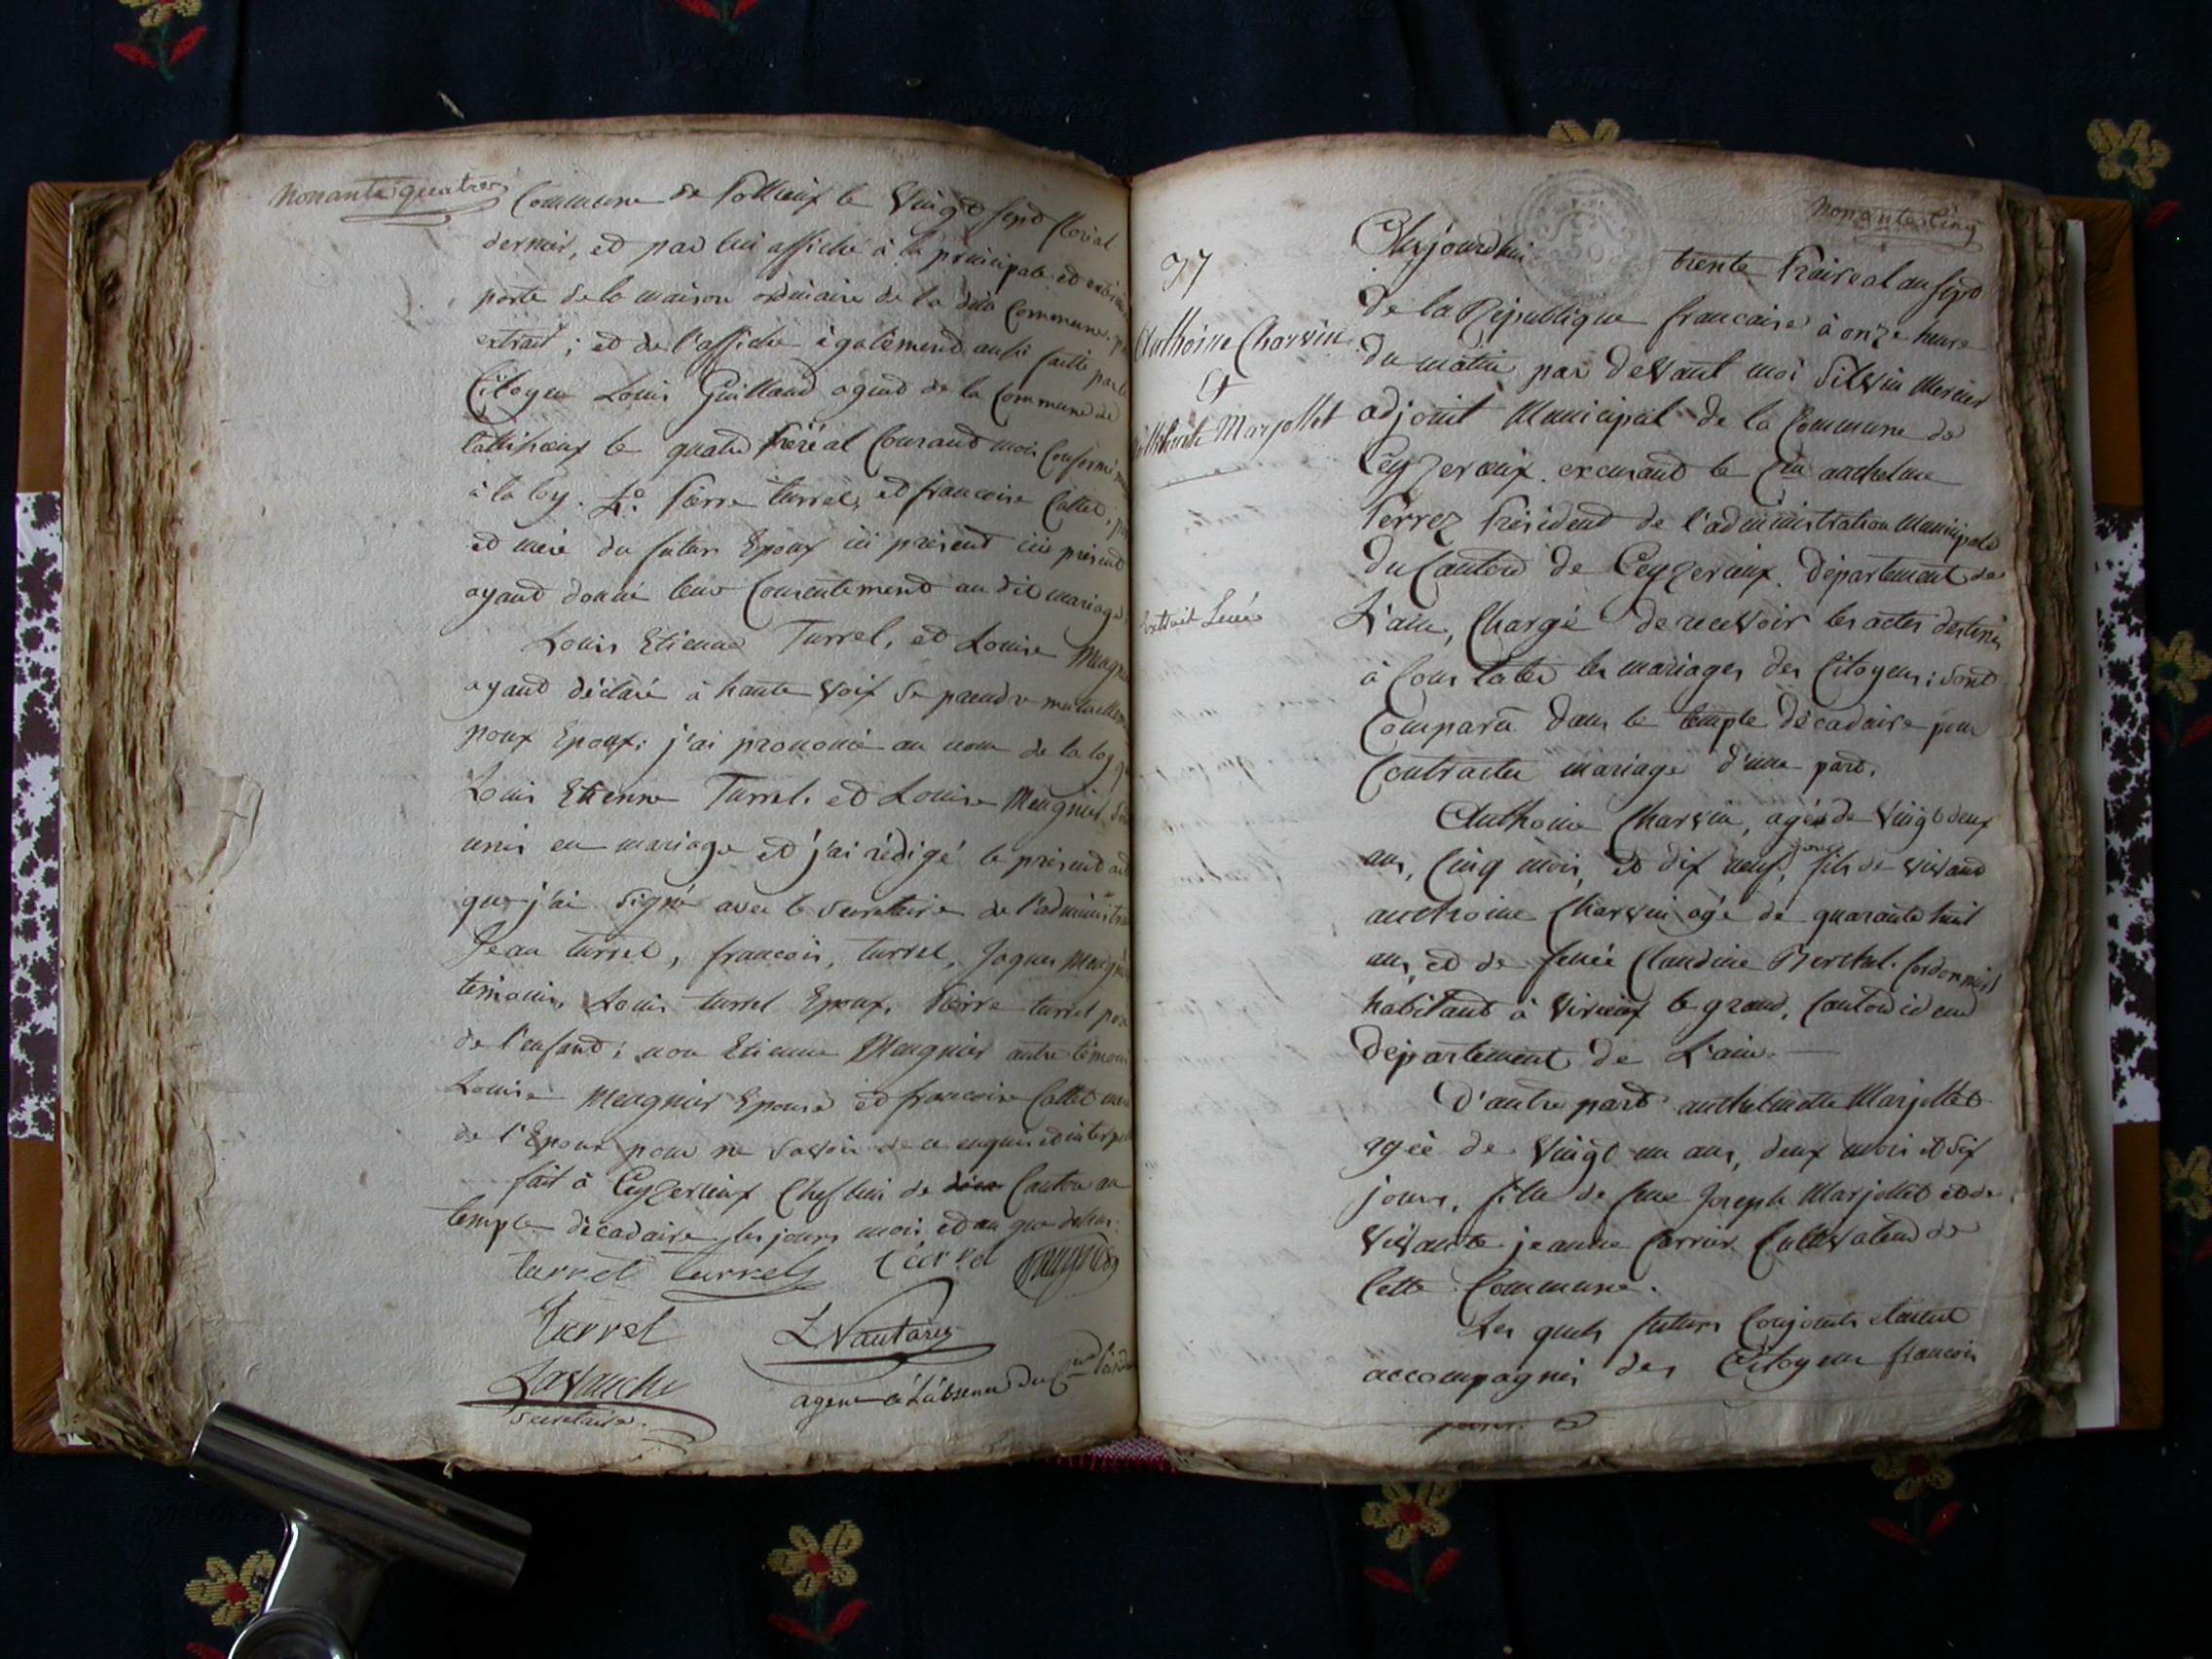 Nonante quatre
Commune de Pollieux le vingt sept floréal
dernier, et par lui affiché à la principale et
porte de la maison ordinaire de la dite Commune
extrait; et de l'affiche également aussi faitte par le
Citoyen Louis Guilland agend de la Commune de
le quatre Preréal Courand mois Conformé
à la loy. Pierre turrel, et francoise Collet,
et mere du futur Epoux ici présent
ayand donné leur Consentement au dit mariage
Louis Etienne Turrel, et Louise Meug
ayand déclaré à haute voix se prendre
pour Epoux; j'ai prononcé au nom de la loy
Louis Etienne Turrel et Louise Meugnier
unis en mariage et j'ai rédigé le présend
que j'ai signé avec le secretaire de l'administra
Jean turrel, francois, turrel, Jaques Meugni
témoins, Louis turrel Epoux, Pierre turrel
de l'enfand; non Etienne Meugnier autre témoin
Louise Meugnier Epouse et francoise Collet
de l'Epoux pour ne savoir de ce enquis et
fait à Ceyzerieux Cheflieu de Canton au
temple décadaire les jours mois et an que dessus.
turrel turrel turrel
turrel
Lavauche
secretaire.
agend à L'absence du
Nonante Cinq
97
Anthoine Charvin
Et
Marjollet
Extrait Levée
Aujourdhui trente Prairéal an sept
de la République francaise à onze heure
du matin par devant moi Silvin Mercier
adjoint Municipal de la Commune de
Ceyzerieux. excusand le Cen anthelme
Perrez Président de l'administration Municipale
du Canton de Ceyzerieux. Département de
L'ain, Chargé de recevoir les actes destinés
à Constater les mariages des Citoyens; sont
Comparu dans le temple décadaire pour
Contracter mariage d'une part.
Anthoine Charvin, agé de vingt deux
ans, Cinq mois, et dix neuf jours, fils de vivand
anthoine Charvin agé de quarante huit
ans, et de feuée Claudine Cordonnier
habitant à Virieux le grand, Canton idem
département de L'ain.
D'autre part anthelmette Marjollet
agée de vingt un ans, deux mois et dix
jours, fille de feue Joseph Marjollet et de
vivante jeanne Carrier Cultivateur de
Cette Commune.
Les quels futurs Conjoints étaient
accompagnés des Citoyens francois